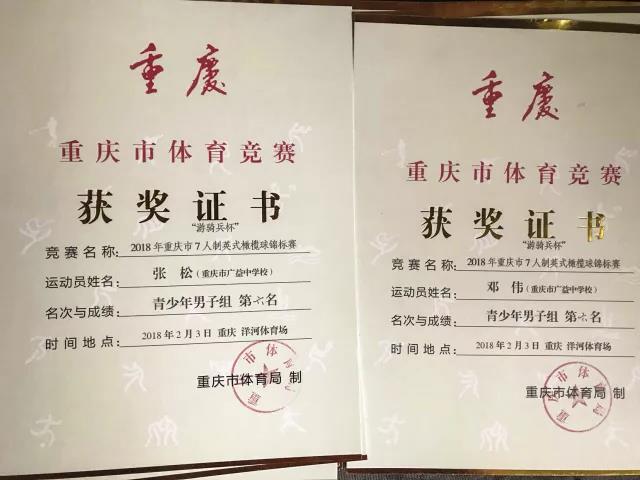 重慶
重庆市体育竞赛
获奖证书
“游骑兵杯”
竞赛名称： 2018年重庆市7人制英式橄榄球锦标赛
运动员姓名： 张 松（重庆市广益中学校）
名次与成绩： 青少年男子组 第六名
时间地点： 2018年2月3日 重庆 洋河体育场
重庆市体育局 制
重慶
重庆市体育竞赛
获奖证书
“游骑兵杯”
竞赛名称： 2018年重庆市7人制英式橄榄球锦标赛
运动员姓名： 邓 伟（重庆市广益中学校）
名次与成绩： 青少年男子组 第六名
时间地点： 2018年2月3日 重庆 洋河体育场
重庆市体育局 制